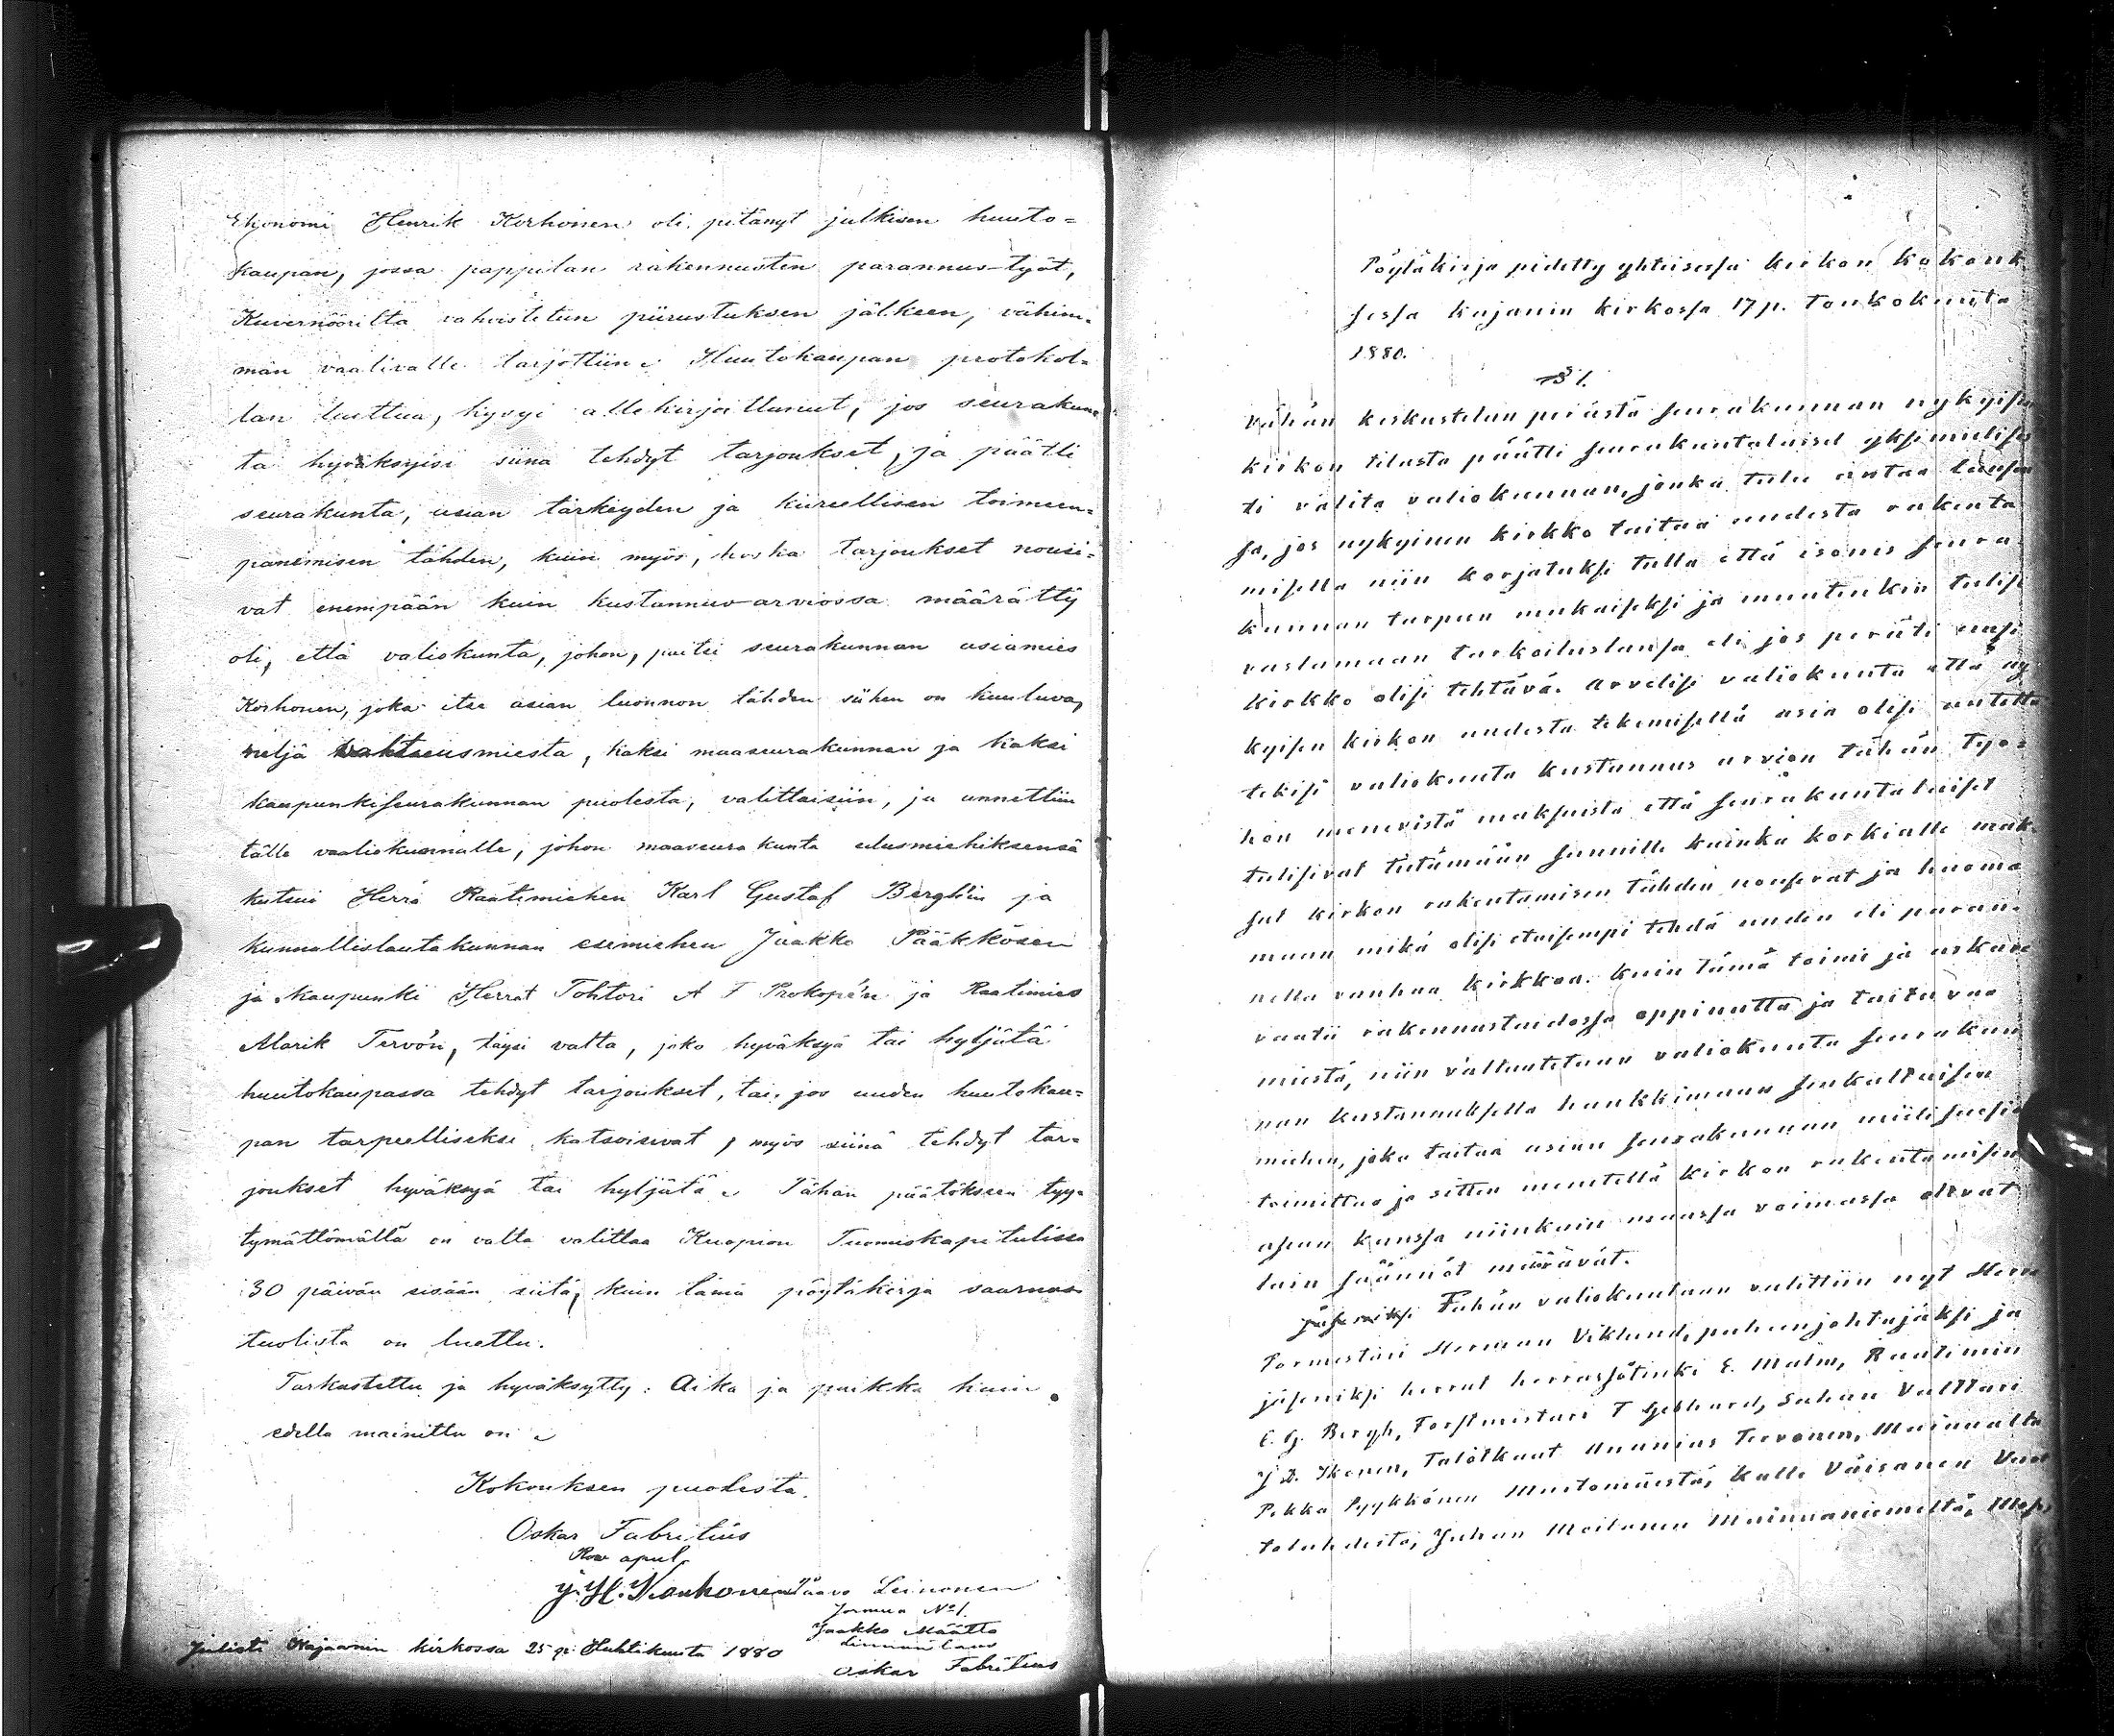 Ekonomi Henrik Korhonen oli pitänyt julkisen huuto=
kaupan, jossa pappilan rakennusten parannus-työt,
Kuvernööriltä vahvistetun piirustuksen jälkeen, vähim=
män vaativalle tarjottiin. Huutokaupan protokol=
lan luettua, kysyi allekirjoittanut, jos seurakun=
ta hyväksyisi siinä tehdyt tarjoukset, ja päätti
seurakunta, asian tärkeyden ja kiireellisen toimeen=
panemisen tähden, kuin myös, koska tarjoukset nousi=
vat enempään kuin kustannus-arviossa määrätty
oli, että valiokunta, johon, paitsi seurakunnan asiamies
Korhonen, joka itse asian luonnon tähden siihen on kuuluva,
neljä miestä, kaksi maaseurakunnan ja kaksi
kaupunkiseurakunnan puolesta, valittaisiin, ja annettiin
tälle valiokunnalle, johon maaseurakunta edusmiehiksensä
kutsui Herra Raatimiehen Karl Gustaf Berghin ja
kunnallislautakunnan esimiehen Jaakko Pääkkösen
ja Kaupunki Herrat Tohtori A F Prokopén ja Raatimies
Alarik Tervón, täysi valta, joko hyväksyä tai hyljätä
huutokaupassa tehdyt tarjoukset, tai, jos uuden huutokau=
pan tarpeelliseksi katsoisivat, myös siinä tehdyt tar=
joukset hyväksyä tai hyljätä. Tähän päätökseen tyy=
tymättömällä on valta valittaa Kuopion Tuomiokapitulissa
30 päivän sisään siitä, kuin tämä pöytäkirja saarnas
tuolista on luettu.
Tarkastettu ja hyväksytty: Aika ja paikka kuin
edellä mainittu on.
Kokouksen puolesta.
Oskar Fabritius
Rov apul.
Paavo Leinonen
Jormua No 1.
Jaakko Määttä
Julisti Kajaanin kirkossa 25 p: Huhtikuuta 1880
Oskar Fabritius
Pöytäkirja pidetty yhteisessä kirkon kokouk
sessa Kajanin kirkossa 17 p. toukokuuta
1880.
§ 1.
Vähän keskustelun perästä seurakunnan nykyisen
kirkon tilasta päätti seurakuntalaiset yksimielises
ti valita valiokunnan, jonka tulee antaa lausun
sa, jos nykyinen kirkko taitaa uudesta rakenta
misella niin korjatuksi tulla että isonis seura
kunnan tarpeen mukaiseksi ja muutenkin tulisi
vastamaan tarkoitustansa eli jos peräti uusi
kirkko olisi tehtävä. Arvelisi valiokunta että ny
kyisen kirkon uudesta tekemisellä asia olisi autettu
tekisi valiokunta kustannus arvion tähän työ=
hön menevistä maksuista että seurakuntalaiset
tulisivat tietämään summille kuinka korkialle mak
sut kirkon rakentamisen tähden nousevat ja huoma
maan mikä olisi etuisempi tehdä uuden eli paran=
nella vanhaa kirkkoa. Kuin tämä toimi ja askare
vaatii rakennustaidossa oppinutta ja taitavaa
miestä, niin valtuutetaan valiokunta seurakun
nan kustannuksella hankkimaan senkaltaisen
miehen, joka taitaa asian seurakunnan mieliksensä
toimittaa ja sitten menetellä kirkon rakentamisen
asian kanssa niinkuin maassa voimassa olevat
lain säännöt määrävät.
Tähän valiokuntaan valittiin nyt Herra
Pormestari Herman Viklund, puheenjohtajaksi ja
jäseniksi herrat E. Malm, Raatimies
C. G. Bergh, Forstmestari T Gebhard, Sahan Valttari
J D. Ikonen, Talolkaat Ananias Tervonen, Mainualta
Pekka Pyykkönen Mustomäestä, Kalle Väisänen Vuot
tolahdesta, Juhan Moilanen Mainuaniemeltä,